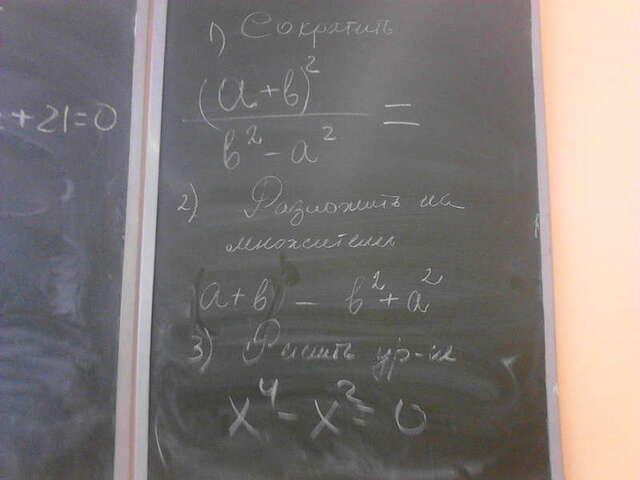 +21=0
1) Сократить
(a+b)²
b²-a² =
2) Разложить на
множители
(a+b) - b²+a²
3) Решить ур-я
x⁴-x²=0